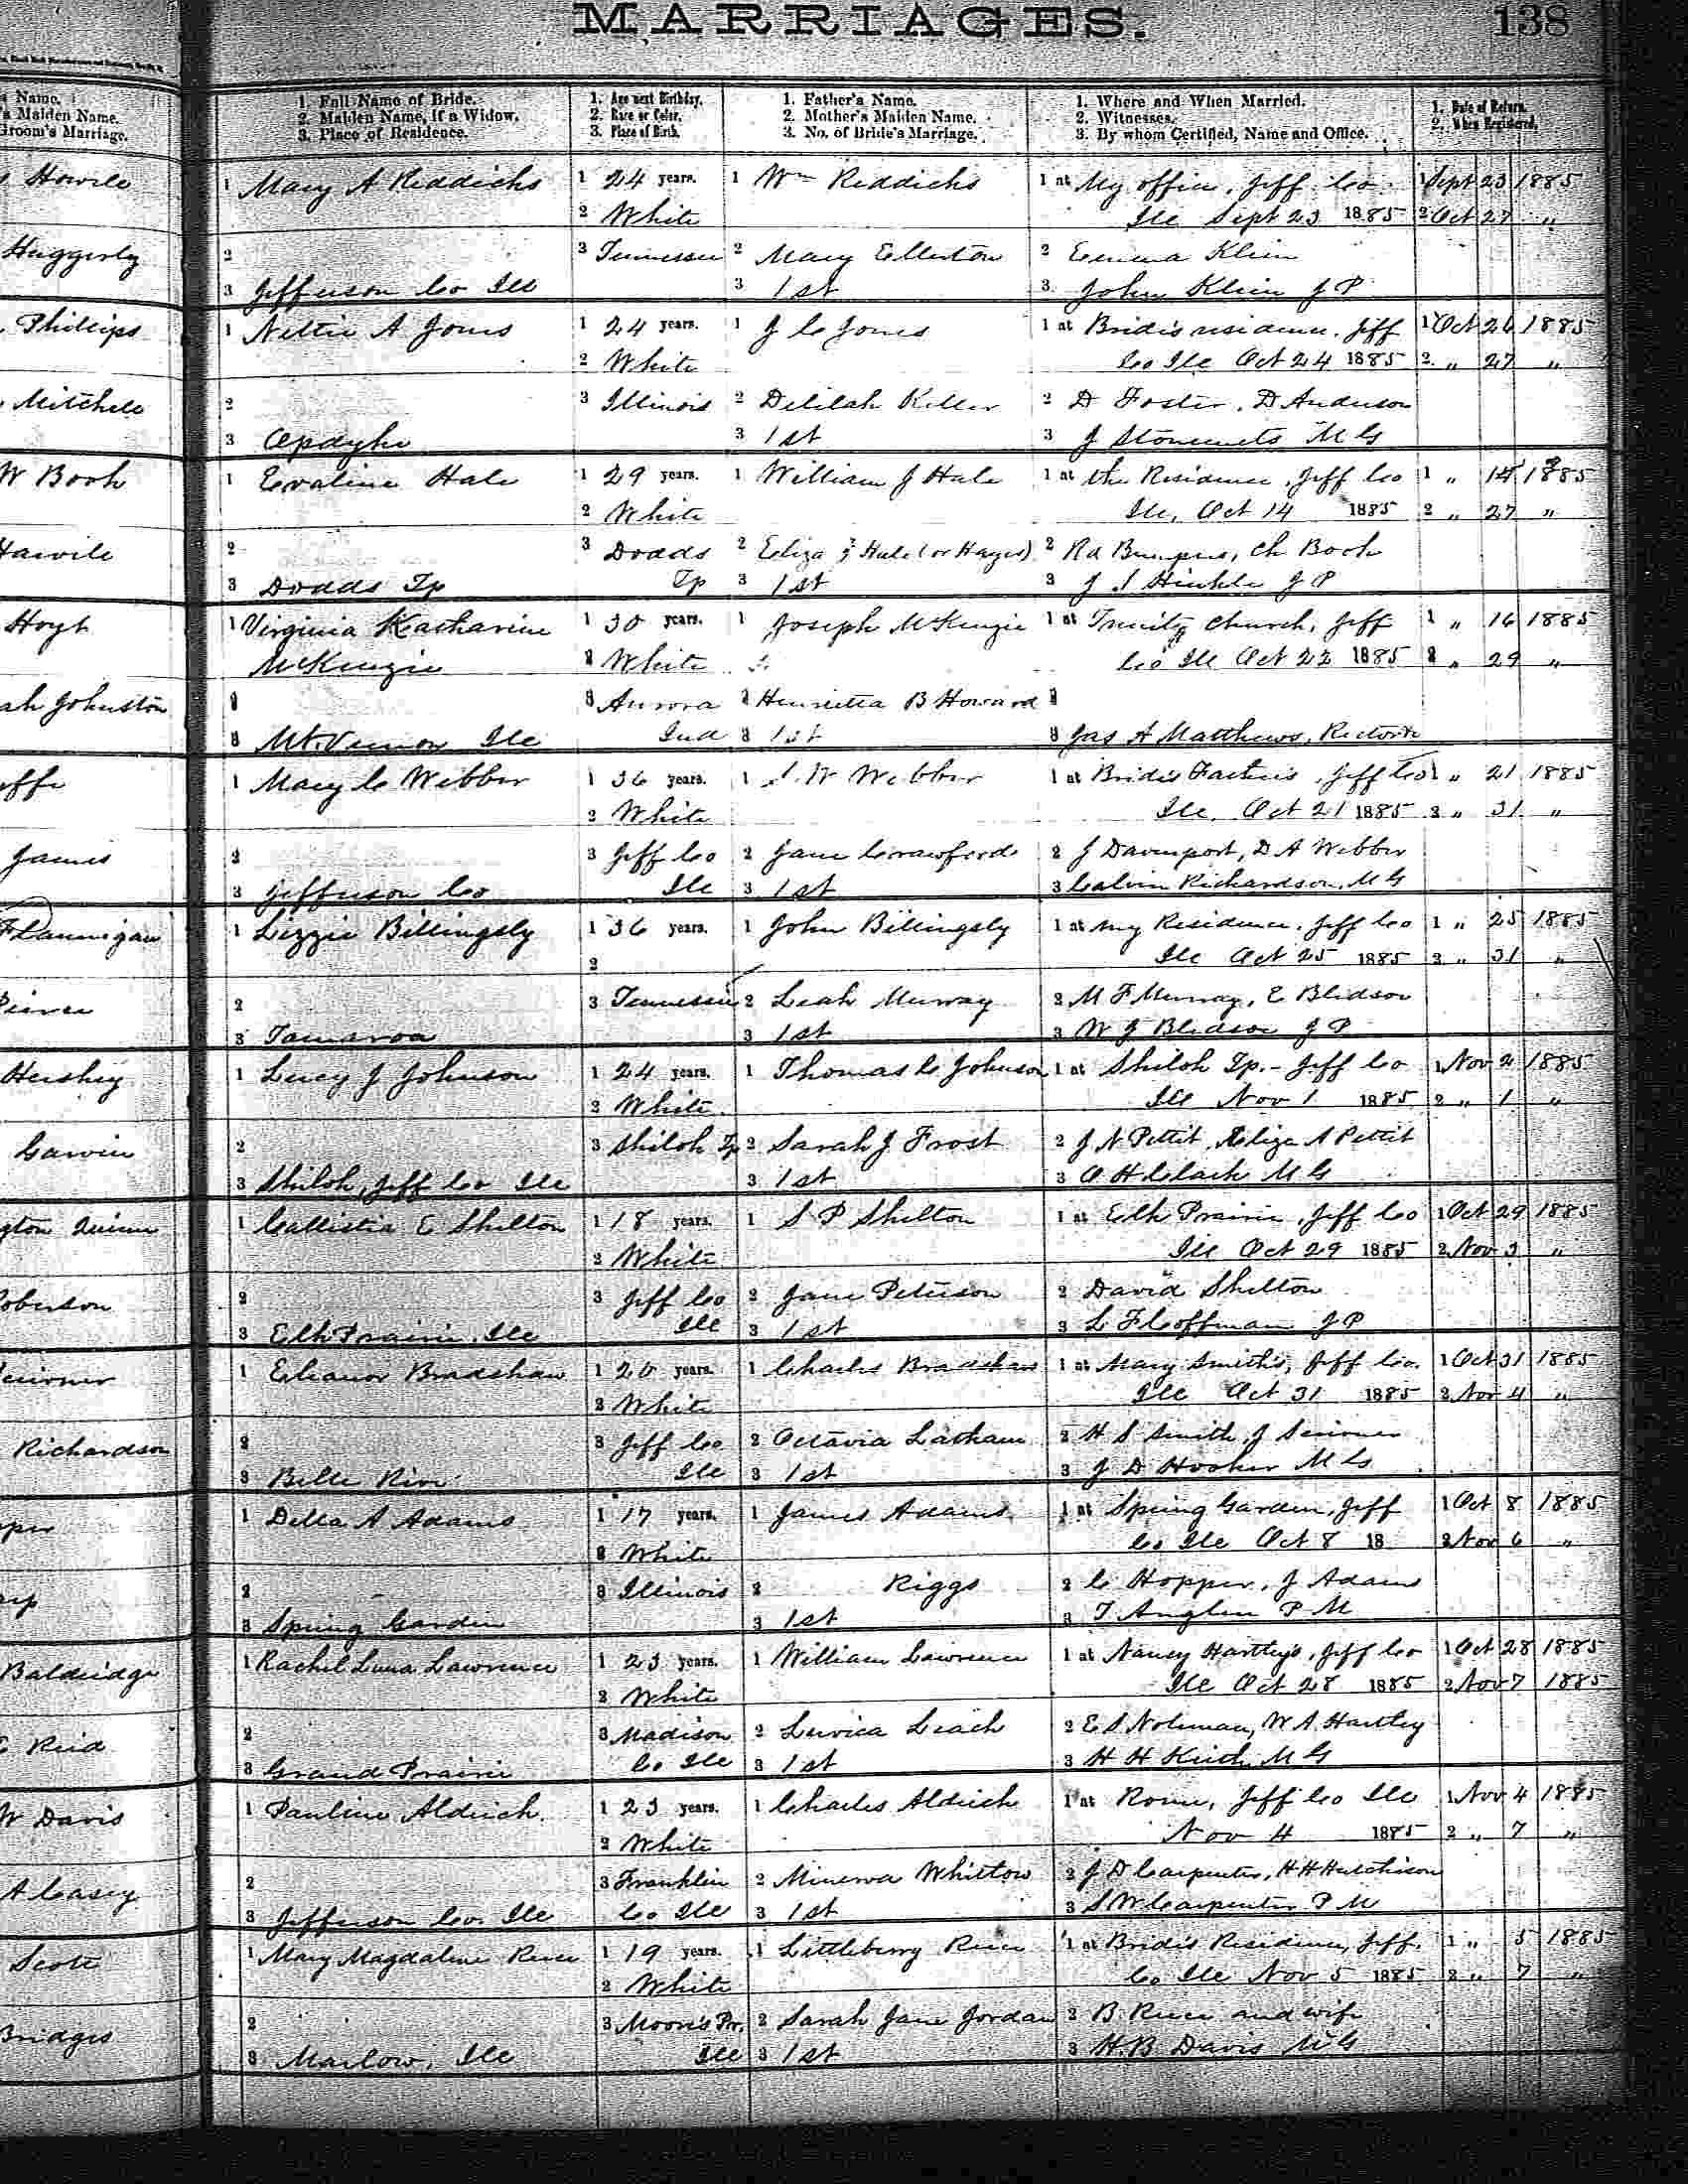 MARRIAGES.
138
Name. 1. Full Name of Bride. 1. Age next Birthday. 1. Father's Name. 1. Where and When Married. 1. Date of Return.
's Maiden Name. 2. Maiden Name, If a Widow. 2. Race or Color. 2. Mother's Maiden Name. 2. Witnesses. 2. When Registered.
Groom's Marriage. 3. Place of Residence. 3. Place of Birth. 3. No. of Bride's Marriage. 3. By whom Certified, Name and Office.
Howile 1 Mary A Riddichs 1 24 years. 1 Wm Riddichs 1 at My office, Jeff Co 1 Sept 23 1885
2 White Ill Sept 23 1885 2 Oct 27 "
Huggerly 2 3 Tennessee 2 Mary Ellerton 2 Emma Klein
3 Jefferson Co Ill 3 1st 3 John Klein J P
Phillips 1 Nettie A Jones 1 24 years. 1 J C Jones 1 at Brides residence, Jeff 1 Oct 26 1885
2 White Co Ill Oct 24 1885 2 " 27 "
Mitchell 2 3 Illinois 2 Delilah Keller 2 D Foster, D Anderson
3 Opdyke 3 1st 3 J Stonemets M G
W Book 1 Evaline Hale 1 29 years. 1 William J Hale 1 at the Residence, Jeff Co 1 " 14 1885
2 White Ill, Oct 14 1885 2 " 27 "
2 3 Dodds 2 Eliza J Hale (or Hayes) 2 Rd Bumpus, Ch Book
3 Dodds Tp Tp 3 1st 3 J S Hinkle J P
Hoyt 1 Virginia Katharine 1 30 years. 1 Joseph McKenzie 1 at Trinity Church, Jeff 1 " 16 1885
McKenzie 2 White Co Ill Oct 22 1885 2 " 29 "
ah Johnston 2 3 Aurora 2 Henrietta B Howard 2
3 Mt. Vernon Ill Ind 3 1st 3 Jas A Matthews, Rector
1 Mary C Webber 1 36 years. 1 S W Webber 1 at Brides Fathers, Jeff Co 1 " 21 1885
2 White Ill, Oct 21 1885 2 " 31 "
James 2 3 Jeff Co 2 Jane Crawford 2 J Davenport, D A Webber
3 Jefferson Co Ill 3 1st 3 Calvin Richardson, M G
Flannigan 1 Lizzie Billingsly 1 36 years. 1 John Billingsly 1 at my Residence, Jeff Co 1 " 25 1885
2 Ill Oct 25 1885 2 " 31 "
2 3 Tennessee 2 Leah Murray 2 M F Murray, E Bledsoe
3 Tamaroa 3 1st 3 W J Bledsoe J P
Hershey 1 Lucy J Johnson 1 24 years. 1 Thomas C Johnson 1 at Shiloh Tp. - Jeff Co 1 Nov 2 1885
2 White Ill Nov 1 1885 2 " 1 "
Garvin 2 3 Shiloh Tp 2 Sarah J Frost 2 J N Pettit, Eliza A Pettit
3 Shiloh, Jeff Co Ill 3 1st 3 O H Clark M G
gton Quinn 1 Callistia E Shelton 1 18 years. 1 S P Shelton 1 at Elk Prairie, Jeff Co 1 Oct 29 1885
2 White Ill Oct 29 1885 2 Nov 3 "
oberson 2 3 Jeff Co 2 Jane Peterson 2 David Shelton
3 Elk Prairie, Ill Ill 3 1st 3 L F Coffman J P
1 Eleanor Bradshaw 1 20 years. 1 Charles Bradshaw 1 at Mary Smith's, Jeff Co. 1 Oct 31 1885
2 White Ill Oct 31 1885 2 Nov 4 "
Richardson 2 3 Jeff Co 2 Octavia Latham 2 H S Smith, J
3 Belle Rive Ill 3 1st 3 J D Hooker M G
1 Della A Adams 1 17 years. 1 James Adams 1 at Spring Garden, Jeff 1 Oct 8 1885
2 White Co Ill Oct 8 18 2 Nov 6 "
2 3 Illinois 2 Riggs 2 C Hopper, J Adams
3 Spring Garden 3 1st 3 T Anglen P M
Baldridge 1 Rachel Luna Lawrence 1 23 years. 1 William Lawrence 1 at Nancy Hartley's, Jeff Co 1 Oct 28 1885
2 White Ill Oct 28 1885 2 Nov 7 1885
Reid 2 3 Madison 2 Luvica Leach 2 E S Noleman, W A Hartley
3 Grand Prairie Co Ill 3 1st 3 H H Keith M G
W Davis 1 Pauline Aldrich 1 23 years. 1 Charles Aldrich 1 at Rome, Jeff Co Ill 1 Nov 4 1885
2 White Nov 4 1885 2 " 7 "
A Casey 2 3 Franklin 2 Minerva Whittow 2 J D Carpenter, H H Hutchison
3 Jefferson Co. Ill Co Ill 3 1st 3 S W Carpenter P M
Scott 1 Mary Magdaline Rice 1 19 years. 1 Littleberry Rice 1 at Brides Residence, Jeff. 1 " 5 1885
2 White Co Ill Nov 5 1885 2 " 7 "
Bridges 2 3 Moore's Pr. 2 Sarah Jane Jordan 2 B. Rice and wife
3 Marlow, Ill Ill 3 1st 3 H. B Davis M G